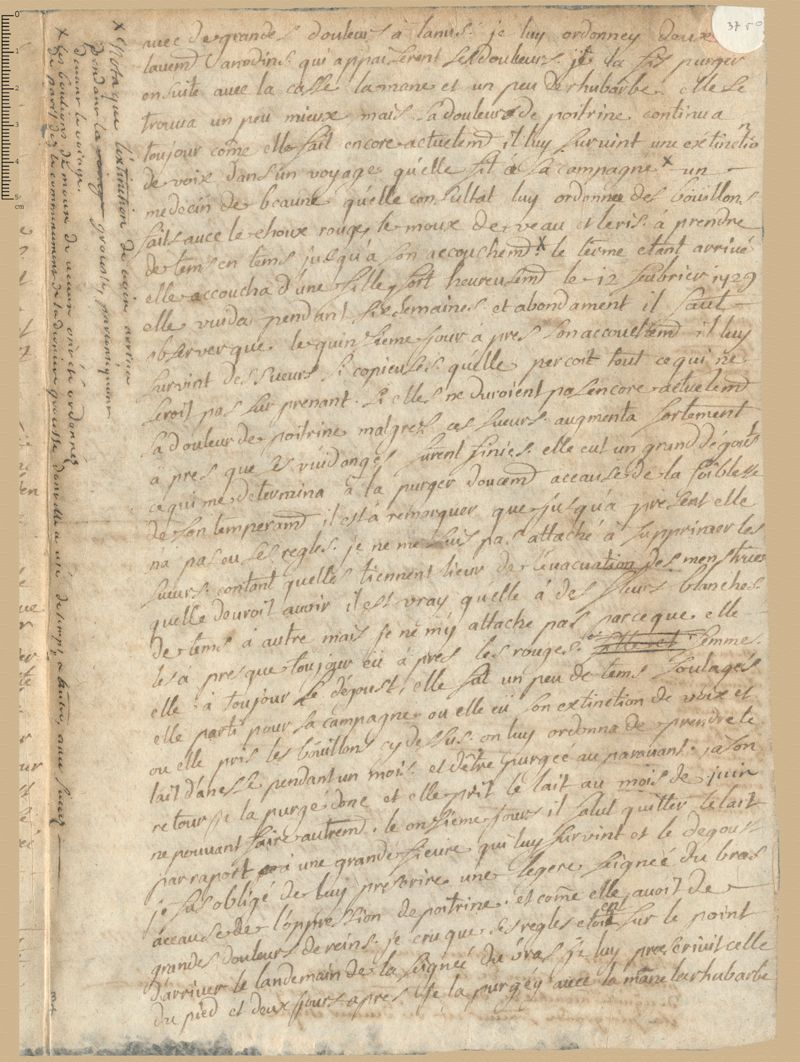 37 50
avec de grandes douleurs à lanus: je luy ordonney deux
lavemd anodins qui appaiserent ses douleurs je la fis purger
ensuite avec la casse la mane et un peu de rhubarbe. elle se
trouva un peu mieux mais sa douleur de poitrine continua
toujour come elle fait encore actuelemd il luy survint une extinctio
n
de voix dans un voyage qu'elle fit à sa compagne x un
medecin de beaune qu'elle consultat luy ordonne des boüillons
faits avec le choux rouge, le moux de veau et le ris à prendre
de tems en tems jusqu'a son accouchemd. x le terme etant arrivé
elle accoucha d'une fille fort heureusemd le 12 feubrier 1729
elle vuida pendant six semaines et abondament il faut
observer que le quinsieme jour à pres son accouchemd il luy
survint des sueurs si copieuses qu'elle percoit tout ce qui ne
seroit pas surprenant si elles ne duroient pas encore actuelemd
sa douleur de poitrine malgres ces sueurs augmenta fortement
à pres que les vuidanges furent finies elle eut un grand dégoust
ce qui me determina à la purger doucemd accause de la foiblesse
de son temperamd il est à remorquer que jusqu'a present elle
na pas ou ses regles. je ne me suis pas attaché à supprimer les
sueurs contant quelles tiennent lieur de l'evacuation des menstrues
quelle deuroit auoir il est vray qu'elle à des fleurs blanches
de tems à autre mais je ne m'y attache pas parceque elle
les à presque toujour eü à pres les rouges. femme.
elle à toujour le dégoust, elle fut un peu de tems soulagés
elle parti pour sa campagne ou elle eü son extinction de voix et
ou elle pris les boüillons cy dessus. on luy ordonna de prendre le
lait d'anesse pendant un mois et d'être purgée au paravant. à son
retour je la purgé donc et elle prit le lait au mois de juin
ne pouvant faire autremd. le onsieme jour il falut quitter le lait
par raport à une grande fievre qui luy survint et le degoust
je fus obligé de luy prescrire une legere seignée du bras
accause de l'oppression de poitrine. et come elle auoit de
grandes douleurs de reins. je cru que ses regles etoient sur le point
d'arriver le landemain de la seignée du bras je luy prescrivit celle
du pied et deux jours apres je la purgéy avec la mane la rhubarbe
x l'extinction de voix arriva
pendant la grossesse,
devant le voyage
x les boüillons de moux de veau ont été ordonnés